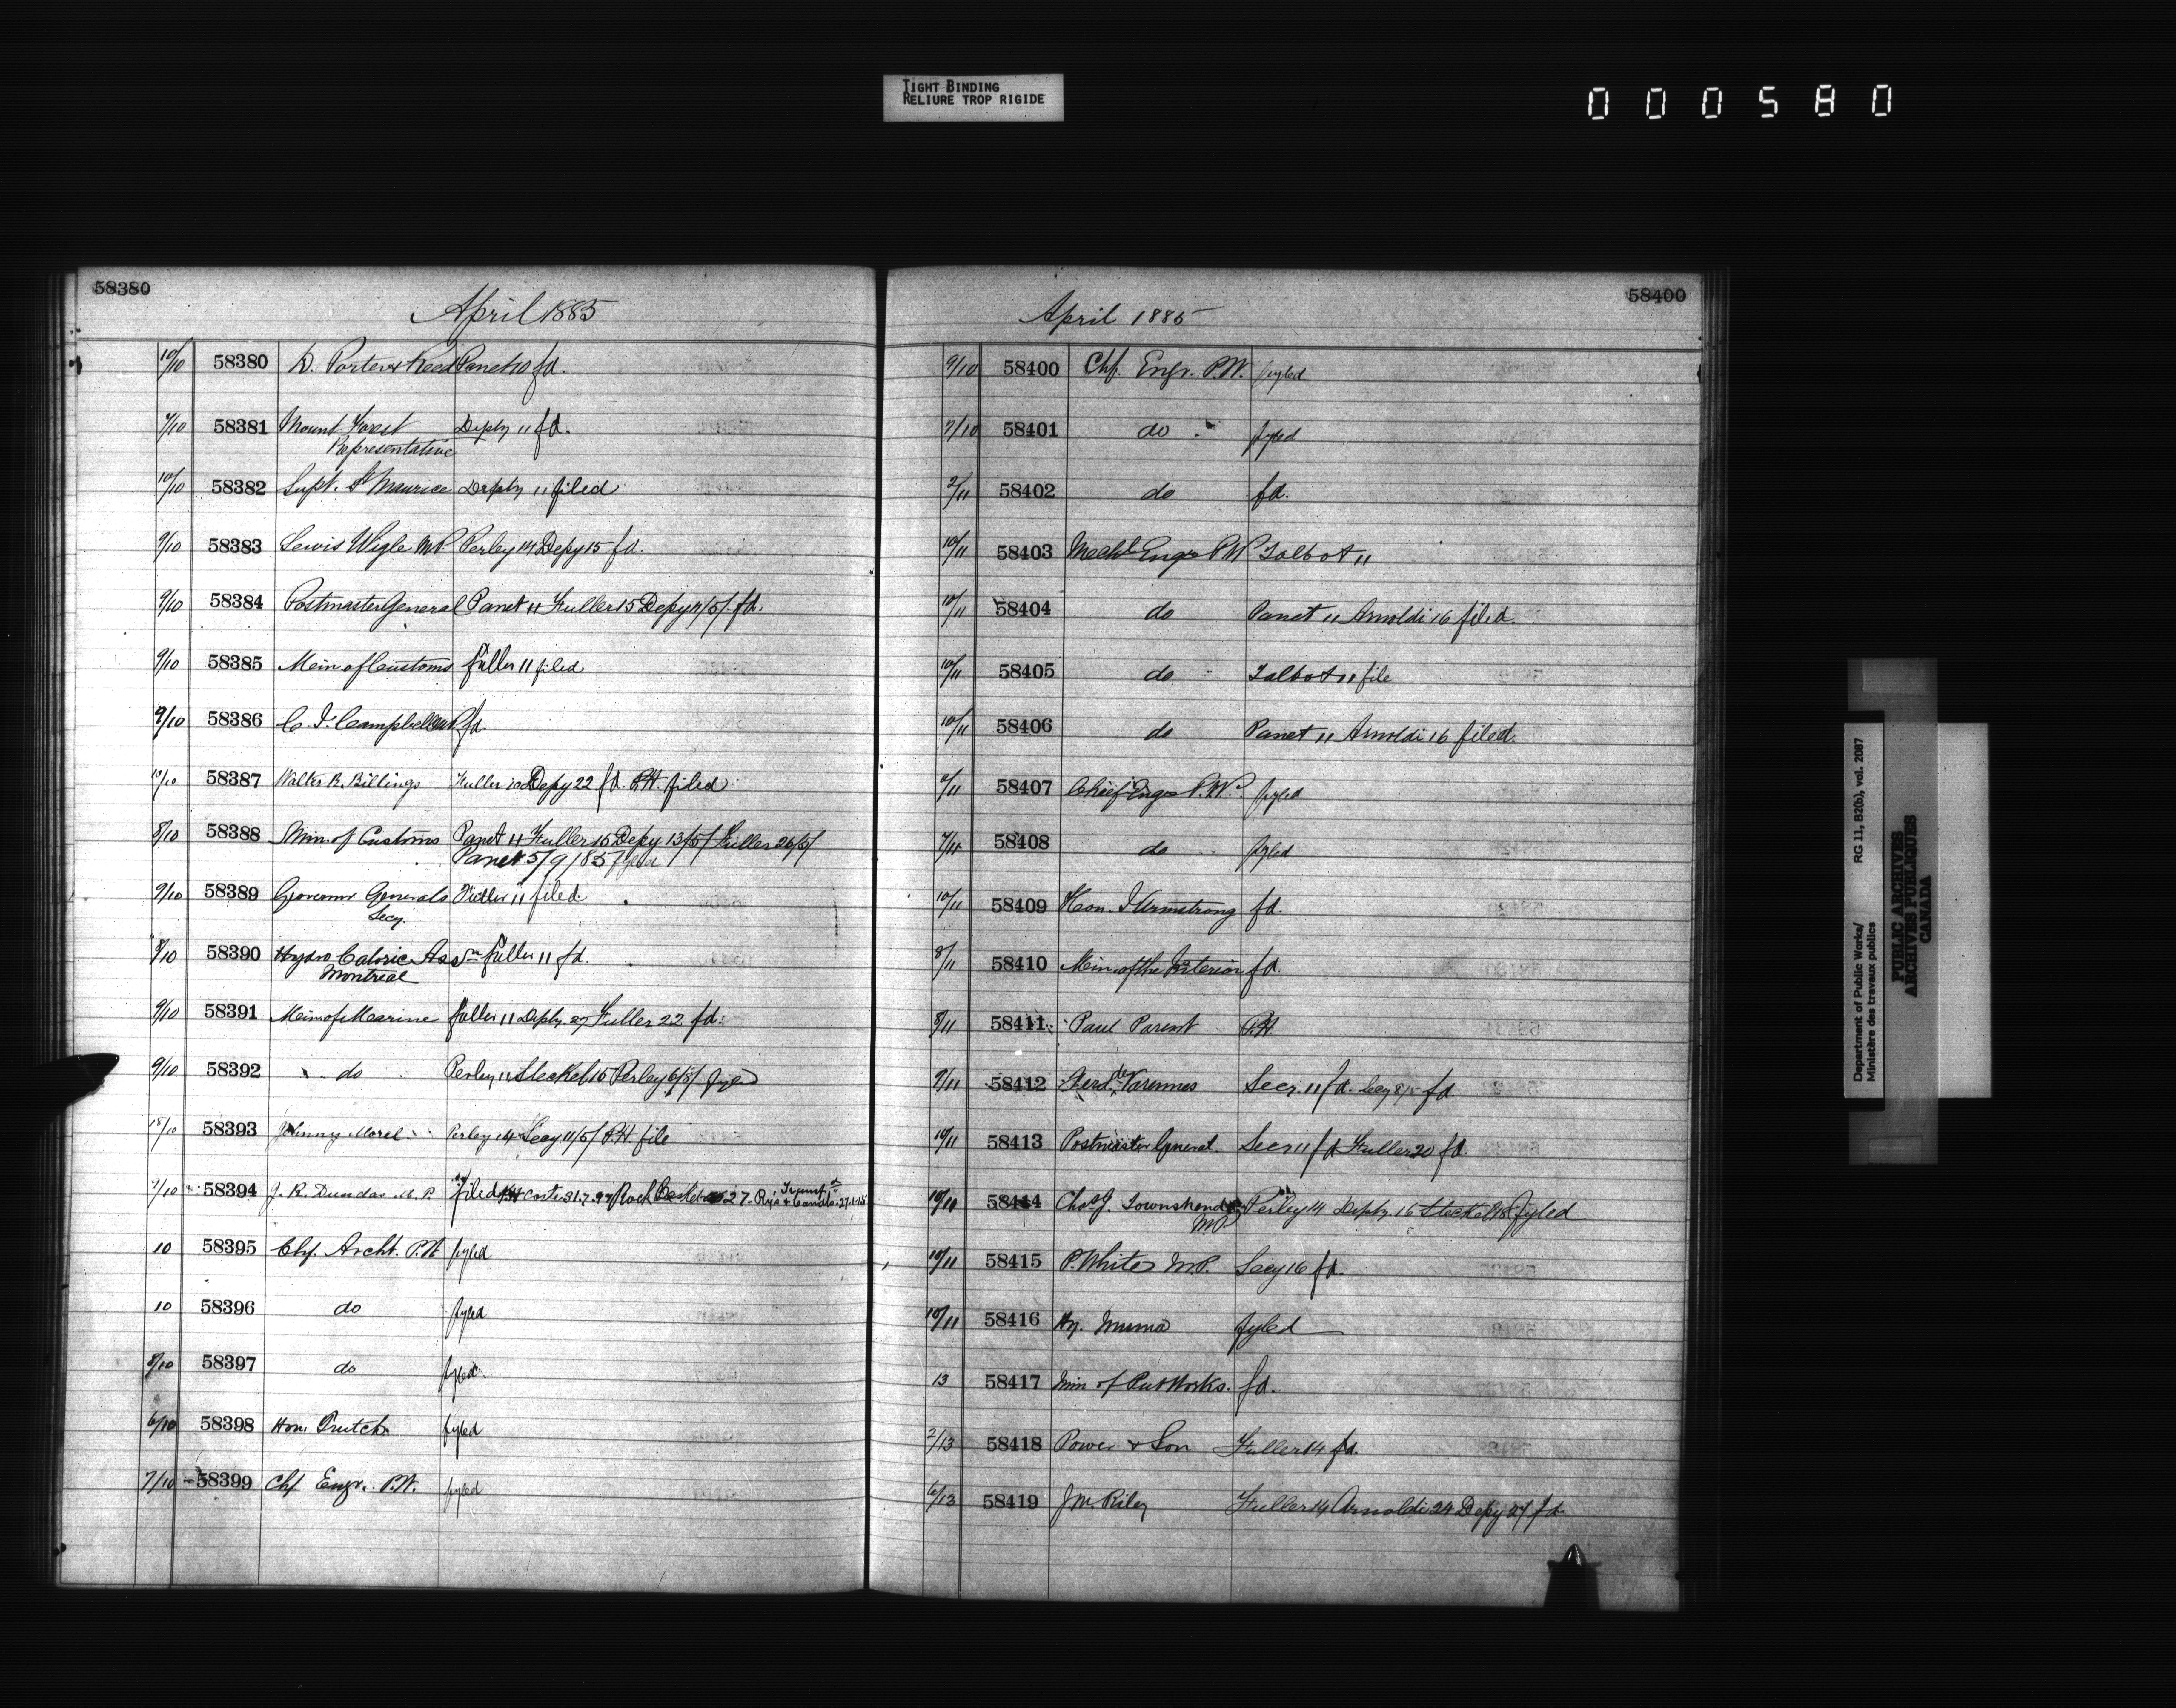 TIGHT BINDING
RELIURE TROP RIGIDE
000580
58380
April 1885
10/10 58380 D. Porter & Reed Panet 10 fd.
9/10 58381 Mount Forest Depty 11 fd.
Representative
10/10 58382 Supt. St Maurice Depty 11 filed
9/10 58383 Lewis Wigle MP Perley 14 Depy 15 fd.
9/10 58384 Postmaster General Panet 11 Fuller 15 Depy 4/5/. fd.
9/10 58385 Min of Customs Fuller 11 filed
9/10 58386 C. J. Campbell MP fd.
10/10 58387 Walter R. Billings Fuller 10 Depy 22 fd. P.H. filed
8/10 58388 Min of Customs Panet 11 Fuller 15 Depy 13/5/ Fuller 26/5/
Panet 5/9/85 fyled
9/10 58389 Governor Generals Fuller 11 filed
Secy.
8/10 58390 Hydro Caloric Assn Fuller 11 fd.
Montreal
9/10 58391 Min of Marine Fuller 11 Depty. 27 Fuller 22 fd.
9/10 58392 do Perley 11 Steckel 15 Perley 6/5/ fyled
18/10 58393 Johnny Morel Perley 14 Secy 11/5/ P.H. file
7/10 58394 J. R. Dundas M.P. filed Rys & Canals
10 58395 Chf. Archt. P.W. fyled
10 58396 do fyled
8/10 58397 do fyled
6/10 58398 Hon. Trutch fyled
7/10 58399 Chf Engr. P.W. fyled
58400
April 1885
9/10 58400 Chf. Engr. P.W. fyled
7/10 58401 do fyled
2/11 58402 do fd.
10/11 58403 Mechl Engr PW Talbot 11
10/11 58404 do Panet 11 Arnoldi 16 filed.
10/11 58405 do Talbot 11 file
10/11 58406 do Panet 11 Arnoldi 16 filed.
9/11 58407 Chief Engr P.W. fyled
7/11 58408 do fyled
10/11 58409 Hon. J Armstrong fd.
8/11 58410 Min of the Interior fd.
8/11 58411 Paul Parent P.H.
9/11 58412 Ferd. de Varennes Secr. 11 fd. Secy 8/5 fd.
10/11 58413 Postmaster General. Secr 11 fd Fuller 20 fd.
10/11 58414 Chas J. Townshend Perley 14 Depty. 16 Steckel 18 fyled
M.P.
10/11 58415 P. White M.P. Secy 16 fd.
10/11 58416 Hy. Muma fyled
13 58417 Min of Pub Works. fd.
2/13 58418 Power & Son Fuller 14 fd.
6/13 58419 J M. Riley Fuller 14 Arnoldi 24 Depy 27 fd
Department of Public Works/ RG 11, B2(b), vol. 2087
Ministère des travaux publics
PUBLIC ARCHIVES
ARCHIVES PUBLIQUES
CANADA